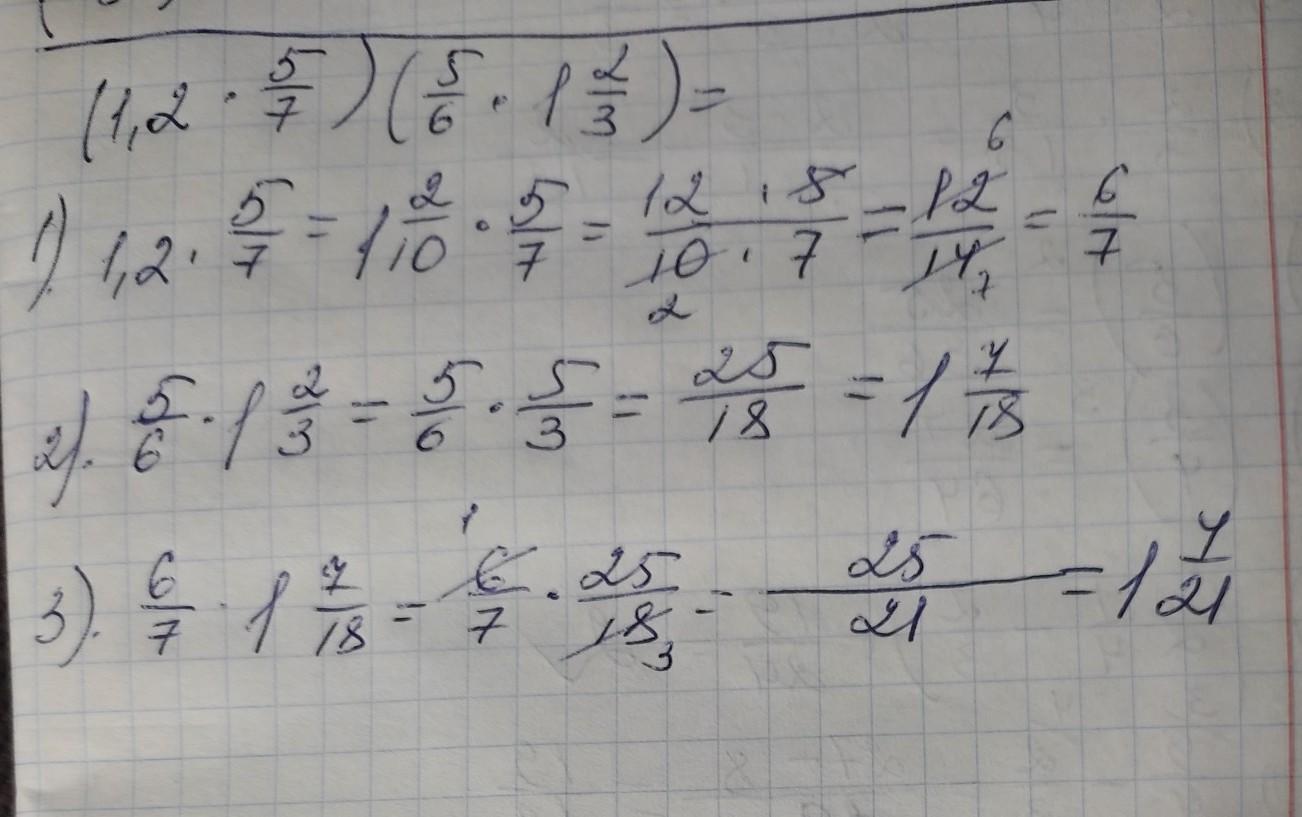 (1,2 · 5/7)(5/6 · 1 2/3) =
1) 1,2 · 5/7 = 1 2/10 · 5/7 = 12 · 5/10 · 7 2 = 12/14 6 7 = 6/7
2). 5/6 · 1 2/3 = 5/6 · 5/3 = 25/18 = 1 7/18
3). 6/7 · 1 7/18 = 1 6/7 · 25/18 3 = 25/21 = 1 4/21